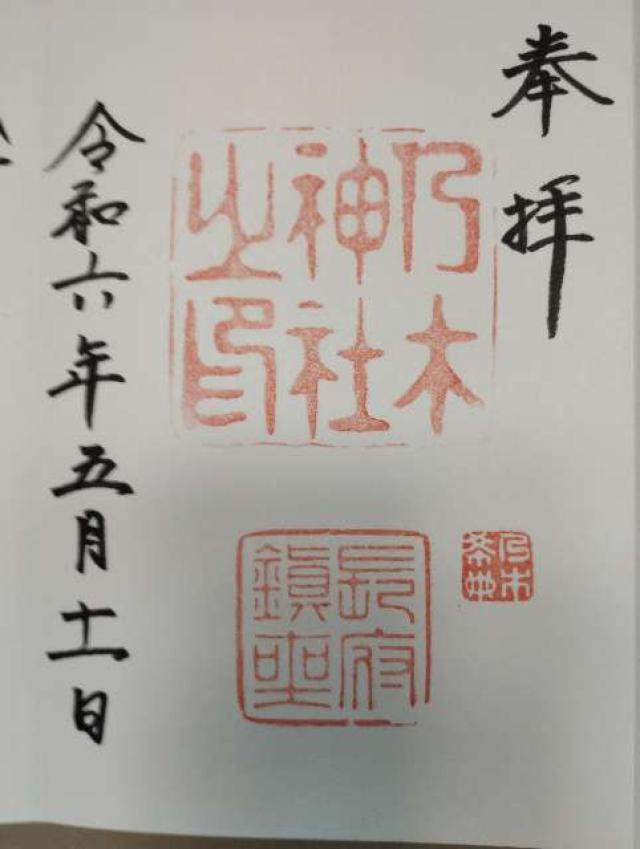 奉拝
乃木
神社
之印
長府
鎮坐
乃木
希典
令和六年五月十一日